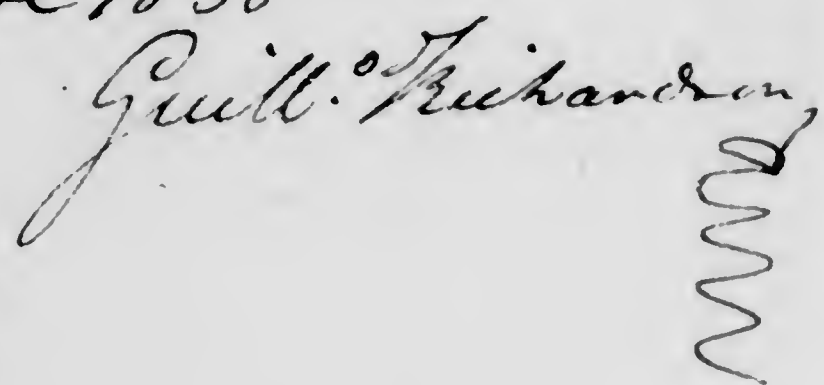 1838
Guill.º Richardson